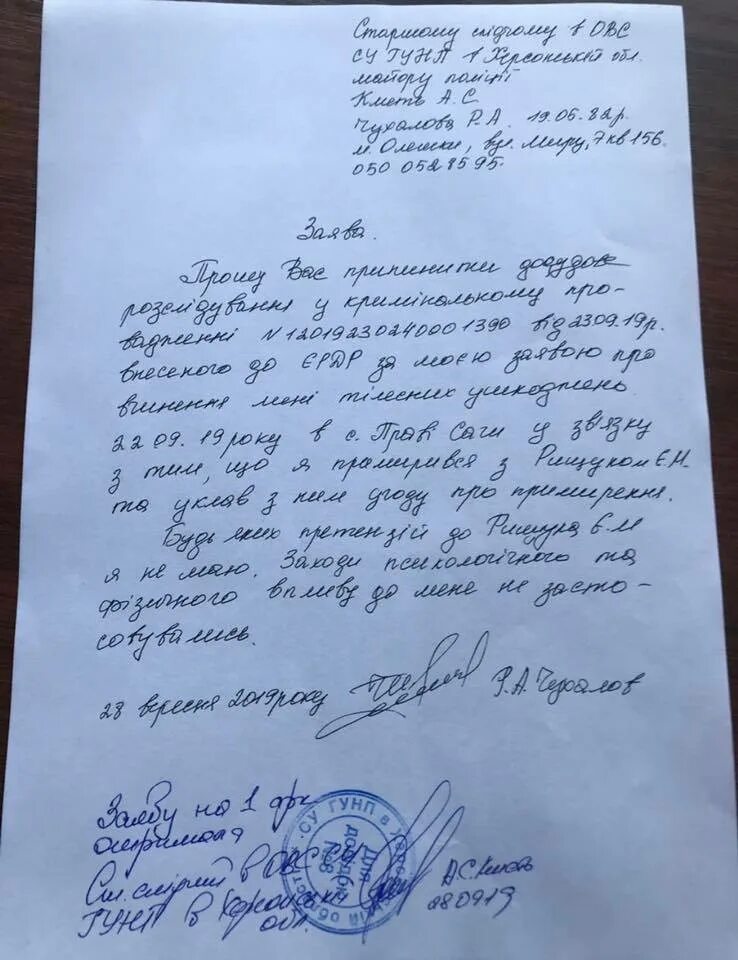 Старшому слідчому в ОВС
СУ ГУНП в Херсонській обл.
майору поліції
Кметь А.С
Чухалова Р.А. 19.06.82р.
м. Олешки, вул. Миру, 7 кв 156.
050 052 85 95.
Заява.
Прошу Вас припинити досудове
розслідування у кримінальному про-
вадженні N12019230240001390 від 23.09.19р.
внесеного до ЄРДР за моєю заявою про
вчинення мені тілесних ушкоджень
22.09.19 року в с. Праві Саги у зв'язку
з тим, що я примирився з Рищуком Є.М
та уклав з ним угоду про примирення.
Будь яких претензій до Рищука Є.М
я не маю. Заходи психологічного та
фізичного впливу до мене не засто-
совувались.
28 вересня 2019 року Р.А. Чухалов
Заяву на 1 арк
отримала
Ст. слідчий в ОВС СУ
ГУНП в Херсонській
обл.
А.С. Кметь
280919
СУ ГУНП в Херсонській області
Для
довідок
№8